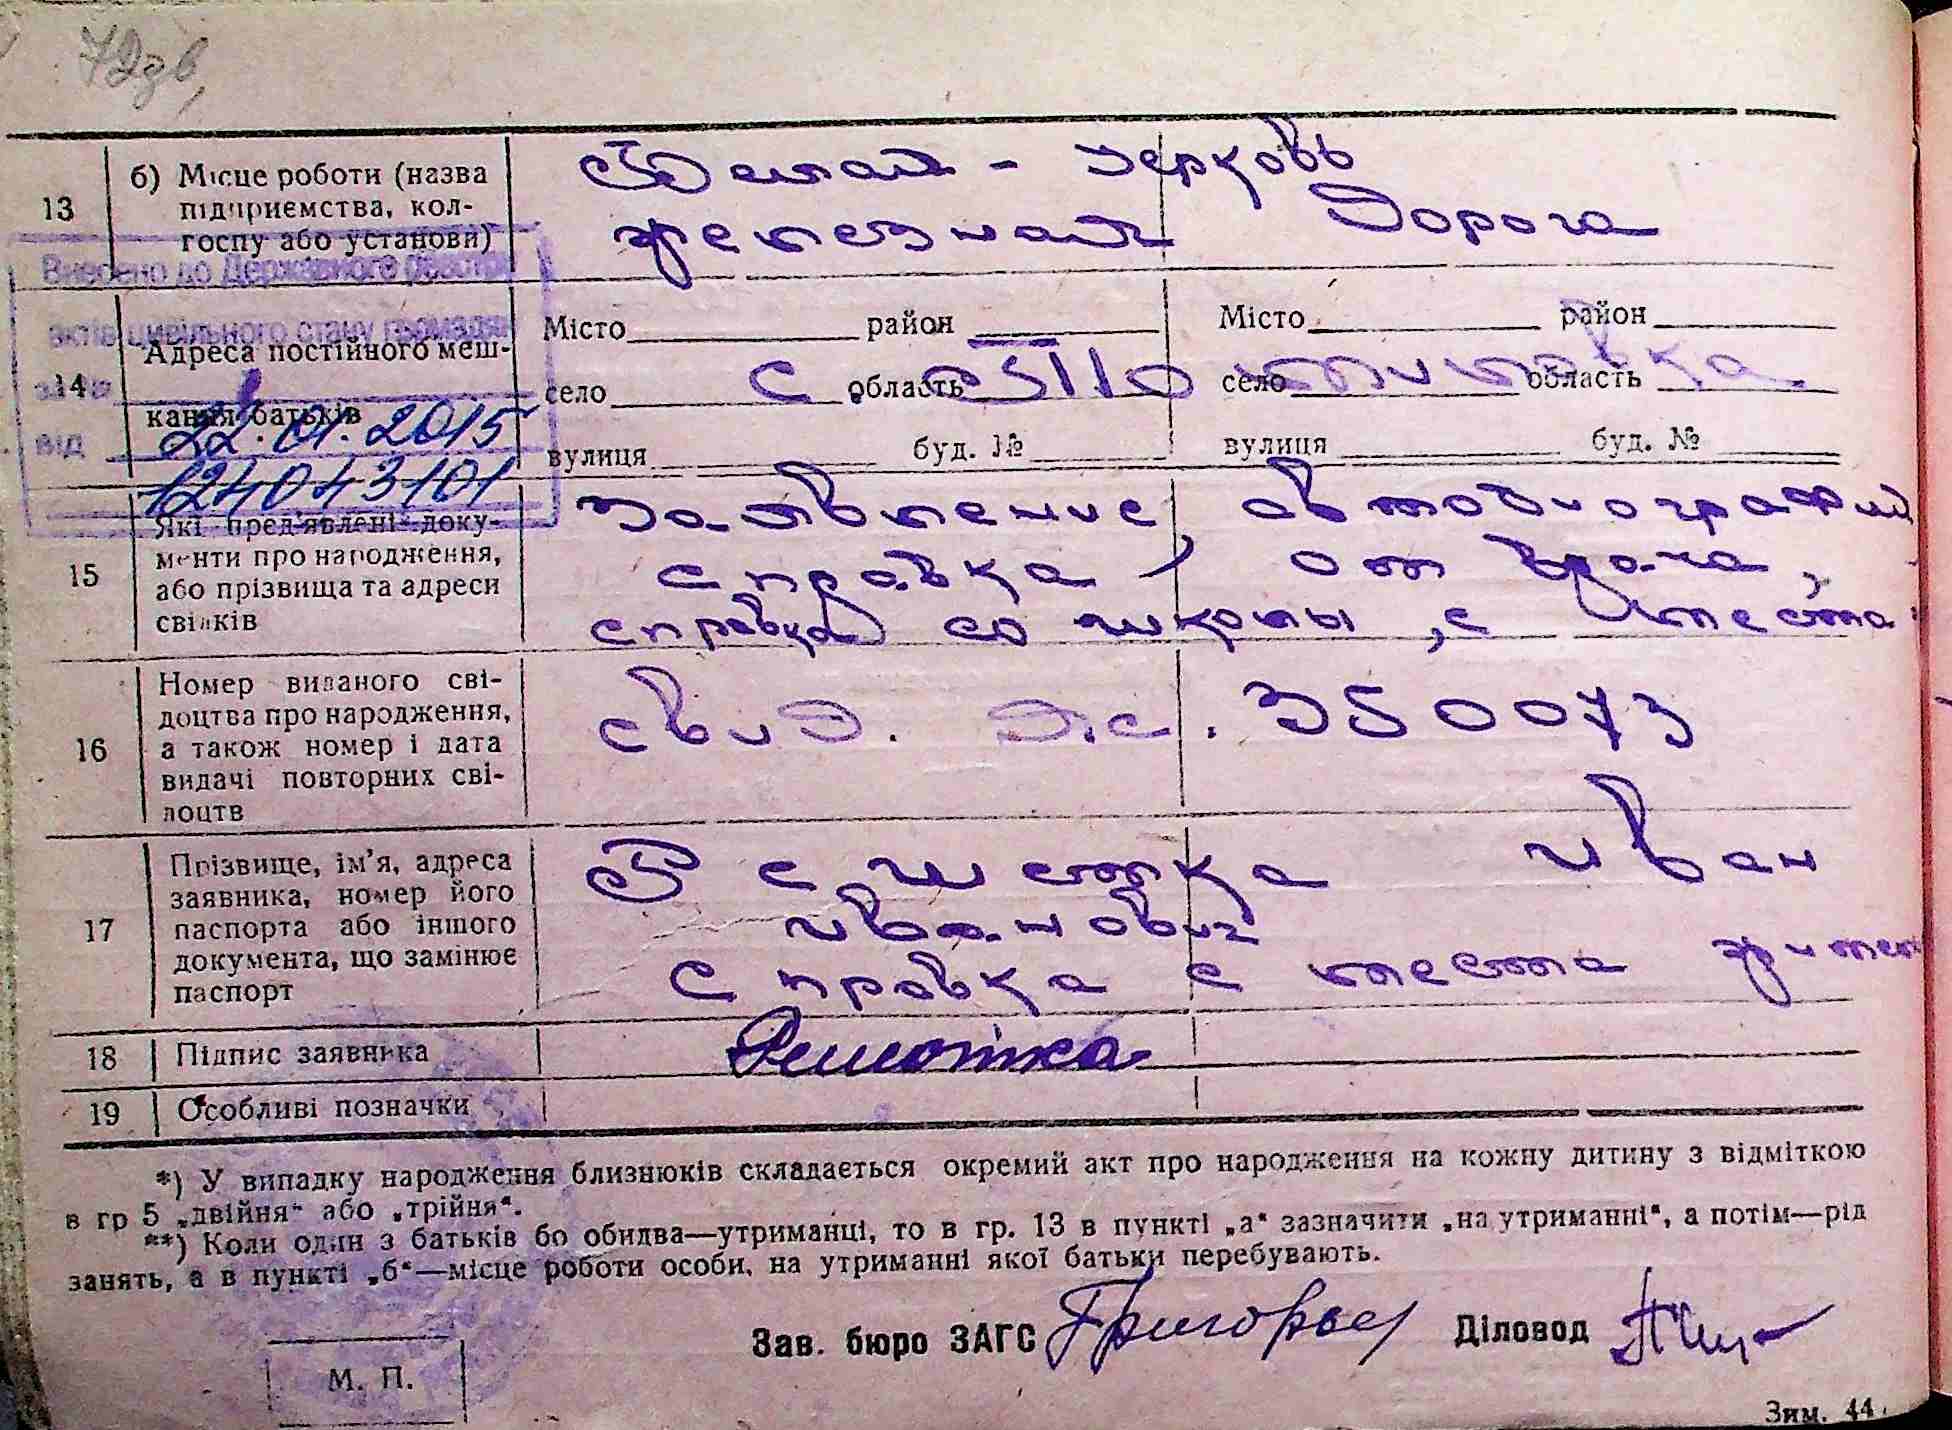 72зв,
13 б) Місце роботи (назва підприємства, колгоспу або установи)
Белая - Церковь
железная Дорога
Внесено до Державного реєстру
актів цивільного стану громадян
від 22.01.2015
124043101
14 Адреса постійного мешкання батьків
Місто район Місто район
село с область село область
вулиця буд. № вулиця буд. №
15 Які пред'явлені документи про народження, або прізвища та адреси свідків
Заявление, автобиография
справка от врача,
справка со школы, с места
16 Номер виданого свідоцтва про народження, а також номер і дата видачі повторних свідоцтв
свид. 350073
17 Прізвище, ім'я, адреса заявника, номер його паспорта або іншого документа, що замінює паспорт
Решетка Иван
Иванович
Справка с места жител
18 Підпис заявника
Решотка
19 Особливі позначки
*) У випадку народження близнюків складається окремий акт про народження на кожну дитину з відміткою
в гр 5 „двійня“ або „трійня“.
**) Коли один з батьків бо обидва—утриманці, то в гр. 13 в пункті „а“ зазначити „на утриманні“, а потім—рід
занять, а в пункті „б“—місце роботи особи, на утриманні якої батьки перебувають.
Зав. бюро ЗАГС Григорьев Діловод
М. П.
Зим. 44